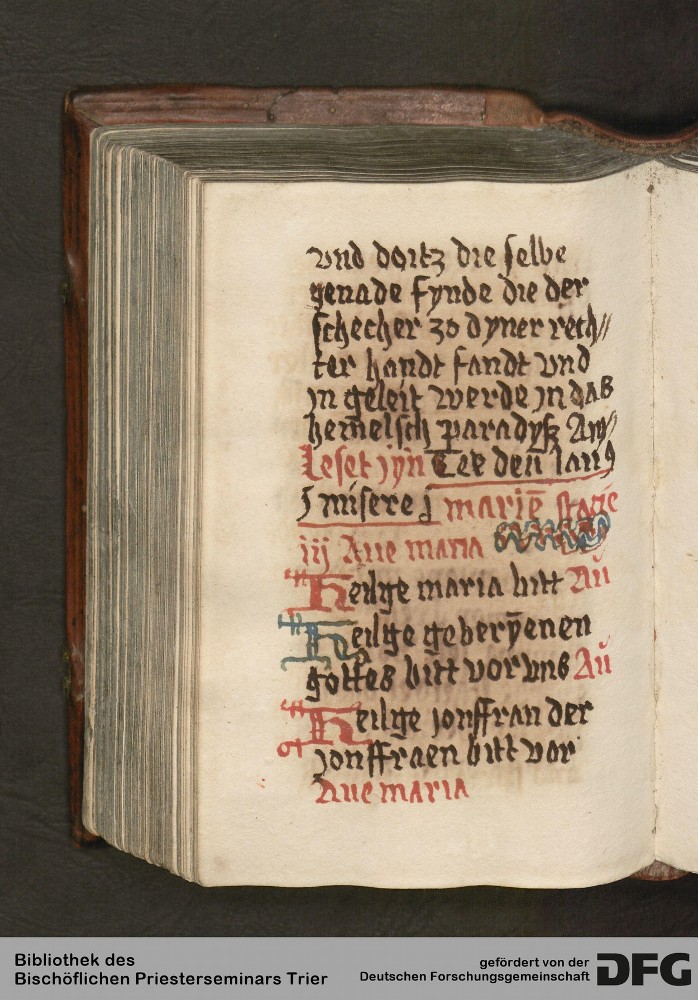 vnd doitz die selbe
genade fynde die der
schecher zo dyner rech//
ter handt fandt vnd
jn geleit werde jn das
hemelsch paradyß Am̄
Leset jyn̄ Tee den̄ lau9
z misere j mariē
iij Aue maria
Heilge maria bitt Aū
Heilge geberȳenen
gottes bitt vor vns Aū
Heilge jonffran der
jonffraen bitt vor
Aue maria
Bibliothek des
Bischöflichen Priesterseminars Trier
gefördert von der
Deutschen Forschungsgemeinschaft
DFG